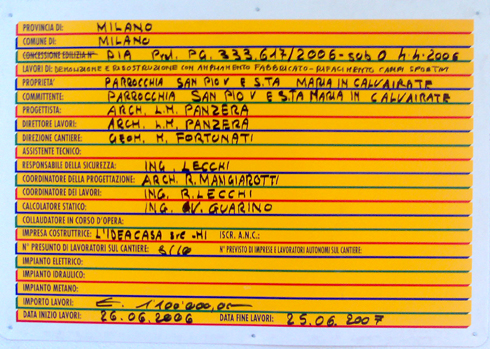 PROVINCIA DI: MILANO
COMUNE DI: MILANO
CONCESSIONE EDILIZIA N° DIA Prot. PG. 333.617/2006 - sub 0 4.4.2006
LAVORI DI: DEMOLIZIONE E RICOSTRUZIONE CON AMPLIAMENTO FABBRICATO - RIFACIMENTO CAMPI SPORTIVI
PROPRIETA' PARROCCHIA SAN PIO V E S.TA MARIA IN CALVAIRATE
COMMITTENTE: PARROCCHIA SAN PIO V E S.TA MARIA IN CALVAIRATE
PROGETTISTA: ARCH. L.M. PANZERA
DIRETTORE LAVORI: ARCH. L.M. PANZERA
DIREZIONE CANTIERE: GEOM. M. FORTUNATI
ASSISTENTE TECNICO:
RESPONSABILE DELLA SICUREZZA: ING. LECCHI
COORDINATORE DELLA PROGETTAZIONE: ARCH. R. MANGIAROTTI
COORDINATORE DEI LAVORI: ING. R. LECCHI
CALCOLATORE STATICO: ING. V. GUARINO
COLLAUDATORE IN CORSO D'OPERA:
IMPRESA COSTRUTTRICE: L'IDEACASA src -MI ISCR. A.N.C.:
N° PRESUNTO DI LAVORATORI SUL CANTIERE: 8/10 N° PREVISTO DI IMPRESE E LAVORATORI AUTONOMI SUL CANTIERE:
IMPIANTO ELETTRICO:
IMPIANTO IDRAULICO:
IMPIANTO METANO:
IMPORTO LAVORI: €. 1100.000,00
DATA INIZIO LAVORI: 26.06.2006 DATA FINE LAVORI: 25.06.2007